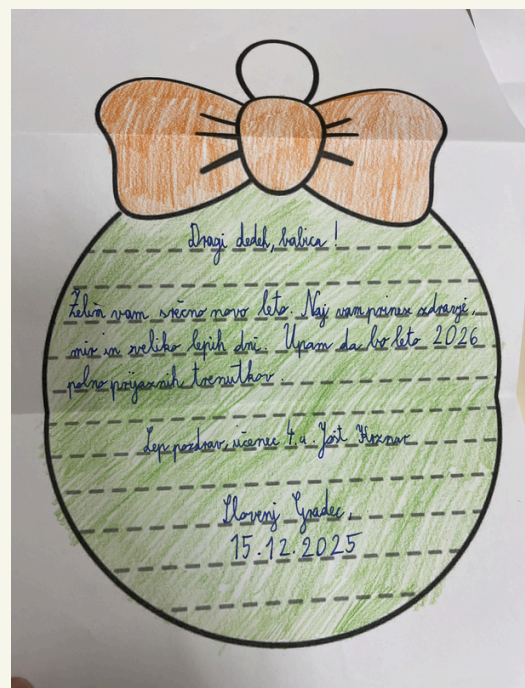 Dragi dedek, babica!
Želim vam srečno novo leto. Naj vam prinese zdravje,
mir in veliko lepih dni. Upam da bo leto 2026
polno prijaznih trenutkov.
Lep pozdrav, učenec 4. a. Jošt
Slovenj Gradec,
15.12.2025